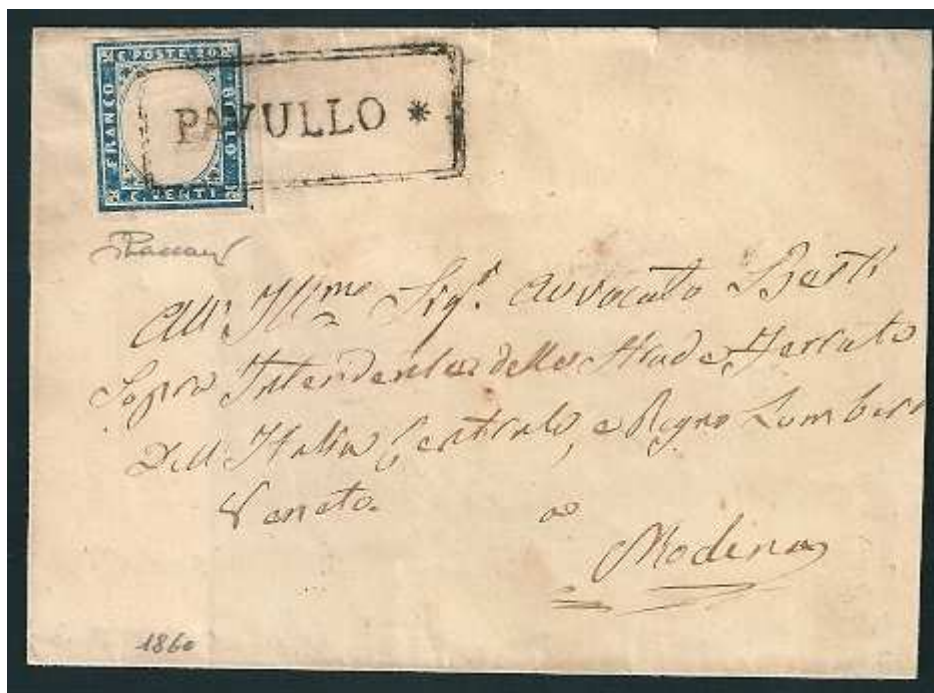 C. POSTE 20
FRANCO
BOLLO
CENTI
PAVULLO *
All' Ill.mo Sig.r Avvocato Berti
Sopra Intendente delle Strade Ferrate
Dell'Italia Centrale, e Regno Lombar
Veneto.
a
Modena
1860